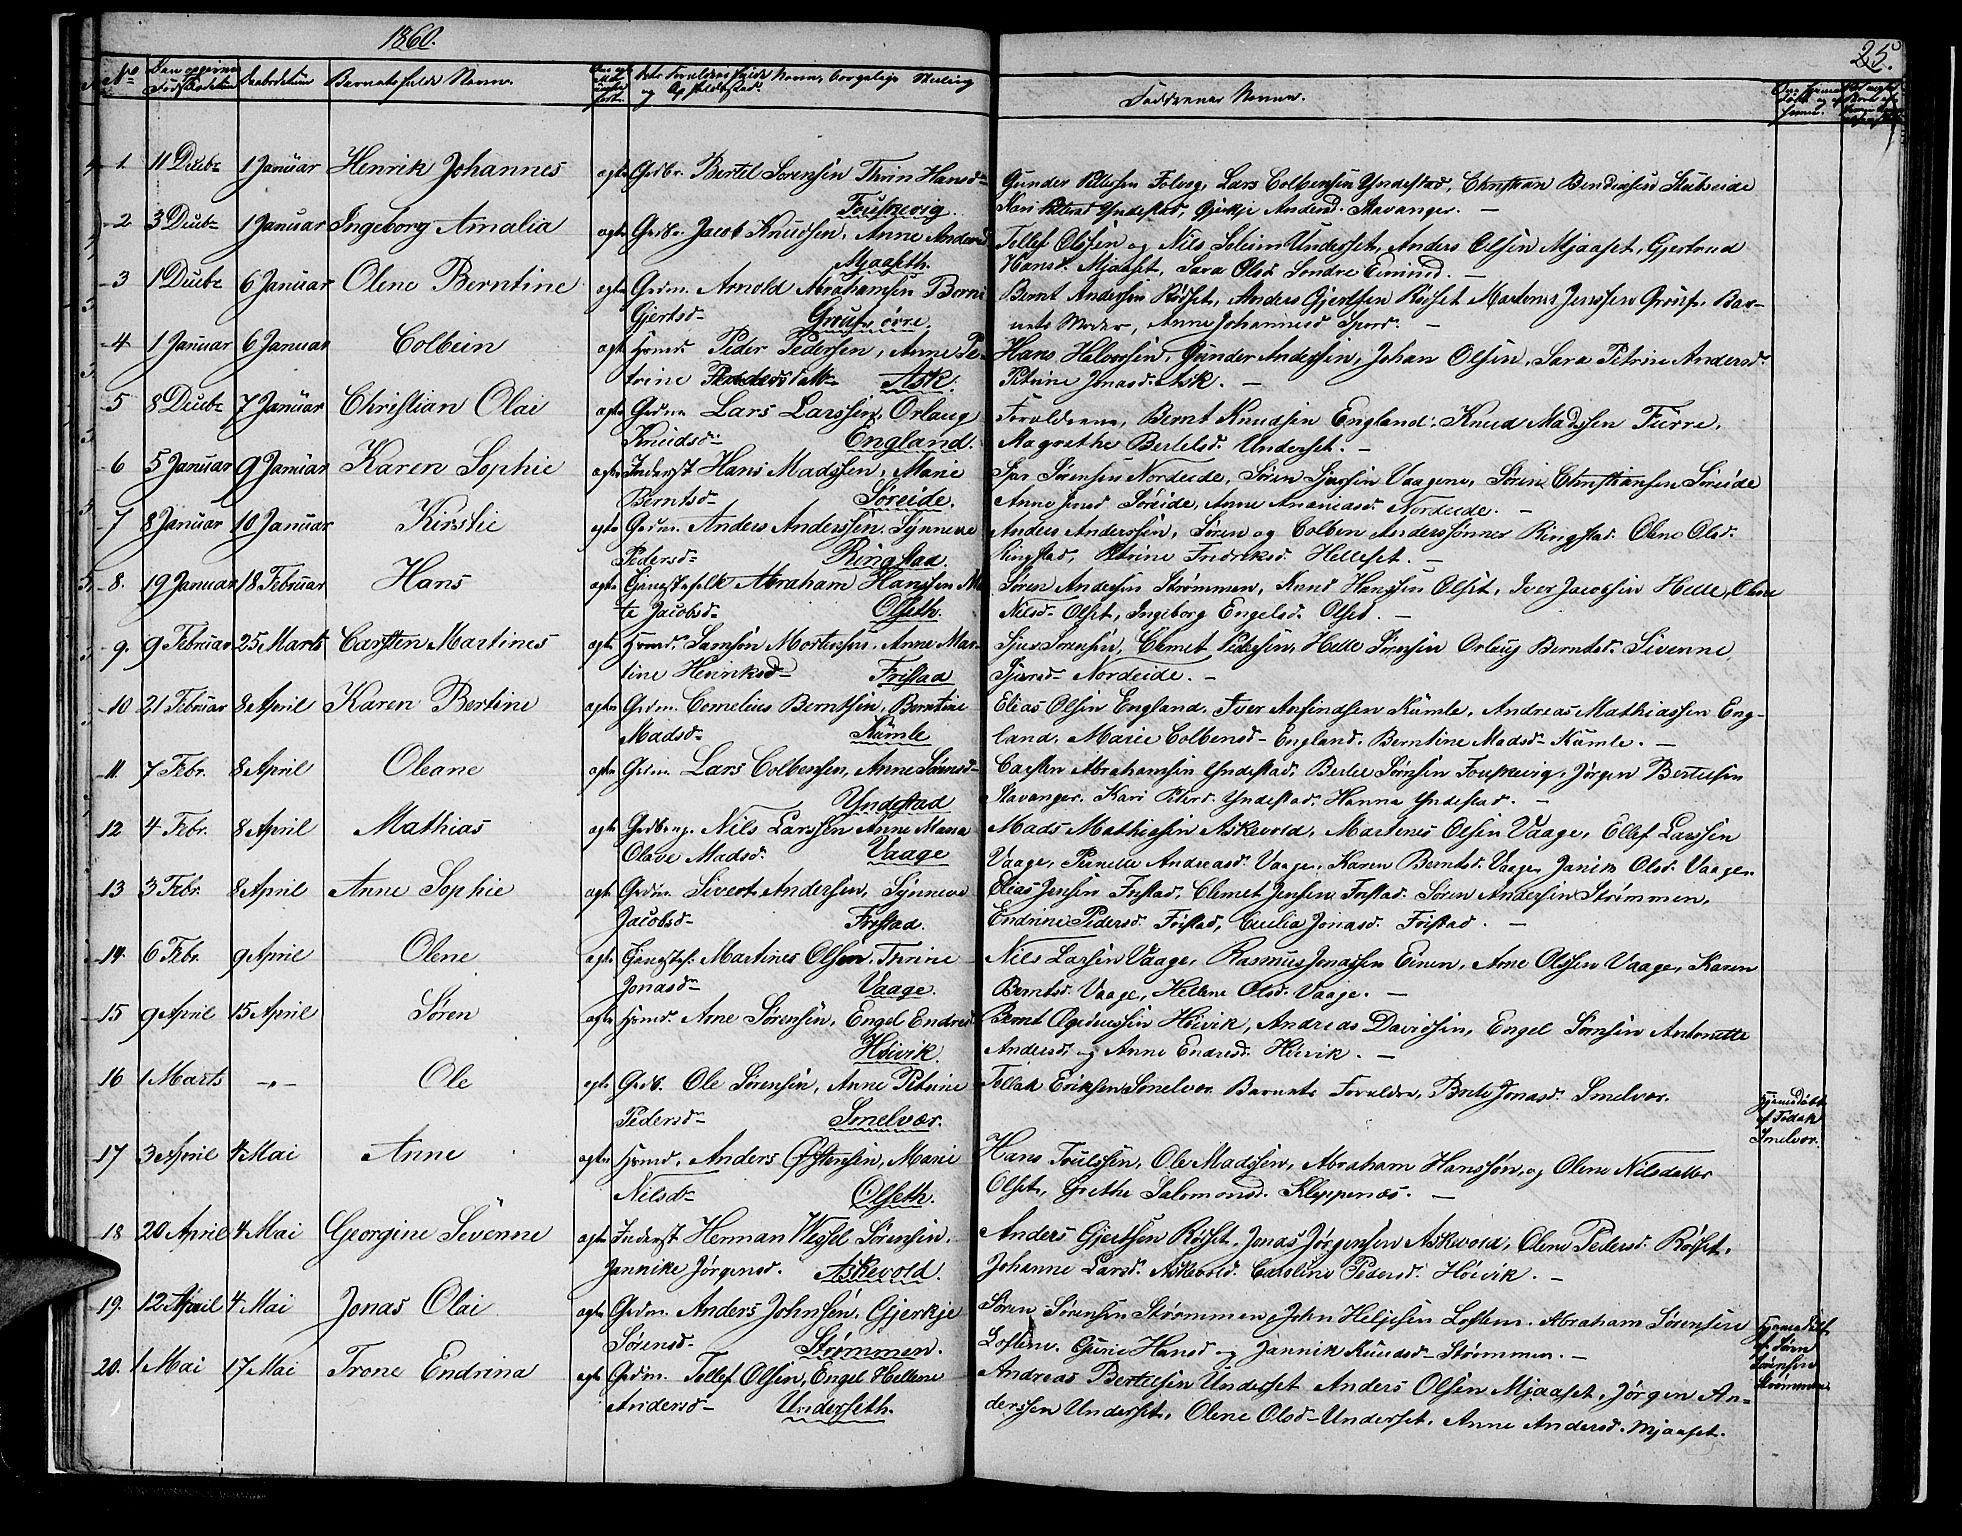 1860.
25.
No
Barnets fulde Navn.
Faddernes Navne.
1. 11 Decbr 1 Januar Henrik Johannes ægte Grdbr. Bertel Sørensen Thrin Hansd.
Fouskevig.
Gunder Lars Colbensen Yndestad, Christian Stubseide
Kari Yndestad, Gjerkje Andersd. Stavanger. —
2 3 Decbr 1 Januar Ingeborg Amalia ægte Grdbr. Jacob Knudsen, Anne Andersd
Mjaaseth.
Tollef Olssen og Nils Underset, Anders Olsen Mjaaset, Gjertrud
Hansd. Mjaaset, Sara Olsd. Søndre —
3 1 Decbr 6 Januar Olene Berntine ægte Grdm. Arnold Abrahamsen Berni
Gjertsd.
Bernt Anderssen Rødset, Anders Gjertsen Rødset Martenus Jenssen Bar-
nets Moder, Anne Johannesd —
4 1 Januar 6 Januar Colbein ægte Hmd. Peder Pedersen, Anne Pe-
trine Ask.
Hans Halvorsen, Gunder Andersen, Johan Olsen, Sara Petrine Andersd.
Petrine Jonasd. Ask. —
5 8 Decbr 7 Januar Christian Olai ægte Grdm Lars Larssen, Orlaug
Knudsd. England.
Forældrene, Bernt Knudsen England, Knud Madssen Furre,
Magrethe Bertelsd. Underset. —
6 5 Januar 9 Januar Karen Sophie ægte Inderst Hans Madssen, Marie
Berntsd Søreide.
Sørensen Nordeide, Søren Vaagene, Søren Christiansen Søreide
Anne Jensd Søreide, Anne Ananiasd. Nordeide. —
7 8 Januar 10 Januar Kirstie ægte Grdm. Anders Anderssen, Synneve
Pedersd. Ringstad.
Anders Anderssen, Søren og Colben Anderssønner Ringstad. Olene Olsd.
Ringstad, Petrine Fredriksd. Helleset. —
8. 19 Januar 18 Februar Hans ægte Gangstefolk Abraham Hanssen Ma-
te Jacobsd. Olseth.
Søren Andersen Strømmen, Knud Hanssen Olset, Iver Jacobsen Helle, Olene
Nilsd. Olset, Ingeborg Engelsd. Olset. —
9. 9 Februar 25 Marts Carsten Martines ægte Hmd. Samson Mortensen, Anne Mar-
tine Henriksd Fristad
Sjur Sørensen, Clemet Pedersen, Helle Sørensen Orlaug Berntsd. Sivenne,
Sjursd. Nordeide. —
10 21 Februar 8 April Karen Bertine ægte Grdm. Cornelius Berntsen, Berntine
Madsd. Kumle
Elias Olsen England, Iver Ansindsen Kumle, Andreas Mathiassen Eng-
land, Marie Colbensd England. Berntine Madsd Kumle. —
11. 7 Febr. 8 April Oleane ægte Grdm. Lars Colbensen, Anne Sørensd
Yndestad
Carsten Abrahamsen Yndestad, Bertel Sørensen Fouskevig, Jørgen Bertelsen
Stavanger. Kari Petersd. Yndestad. Hanna Yndestad. —
12 4 Febr. 8 April Mathias ægte Nils Larssen Anne Maria
Olave Madsd. Vaage
Mads Mathiesen Askevold, Martenes Olsen Vaage, Ellef Larssen
Vaage, Pernelle Andreasd. Vaage, Karen Berntsd. Vaage, Janikе Olsd. Vaage.
13 3 Febr. 8 April Anne Sophie ægte Grdm. Sivert Andersen, Synneve
Jacobsd. Fristad.
Elias Jensen Fristad, Clemet Jensen Fristad. Søren Andersen Strømmen,
Endrine Pedersd. Fristad, Cecilia Jonasd. Fristad. —
14. 6 Febr. 9 April Olene ægte Martines Olsen, Thrine
Jonasd. Vaage.
Nils Larsen Vaage, Rasmus Jonassen Arne Olssen Vaage, Karen
Berntsd. Vaage, Hellene Olsd. Vaage. —
15 9 April 15 April Søren ægte Hmd. Arne Sørensen, Engel Endresd
Høivik.
Bernt Høivik, Andreas Davidsen, Engel Sørensen Antonette
Andersd. og Anne Endresd. Høivik. —
16 1 Marts -„- Ole ægte Ole Sørensen, Anne Petrine
Pedersd. Smelvær.
Tollak Eriksen Smelvær. Barnets Forældre, Brite Jonasd. Smelvær.
Hjemedøbt
af
Smelvær.
17 3 April 4 Mai Anne ægte Hmd. Anders Østensen, Marie
Nilsd. Olseth.
Hans Ole Madssen, Abraham Hanssøn og Olene Nilsdatter
Olset, Grethe Salomonsd. Kleppenæs. —
18 20 April 4 Mai Georgine Sivenne ægte Inderst Herman Wessel Sørensen,
Jannike Jørgensd. Askevold.
Anders Gjertsen Rødset, Jonas Jørgensen Askevold, Olene Pedersd. Rødset,
Johanne Larsd. Askevold. Caroline Pedersd. Høivik. —
19. 12 April 4 Mai Jonas Olai ægte Grdm. Anders Johnsen, Gjerkje
Sørensd. Strømmen.
Søren Sørensen Strømmen, John Heljesen Loftem. Abraham Sørensen
Loftem. Guri Hansd og Jannik Knudsd Strømmen. —
Hjemedøbt
af Søren
Strømmen
20. 1 Mai 17 Mai Trone Endrina ægte Grdm. Tollef Olsen, Engel Hellene
Andersd Underseth.
Andreas Bertelsen Underset. Anders Olsen Mjaaset, Jørgen An-
derssen Underset, Olene Olsd Underset, Anne Andersd. Mjaaset.